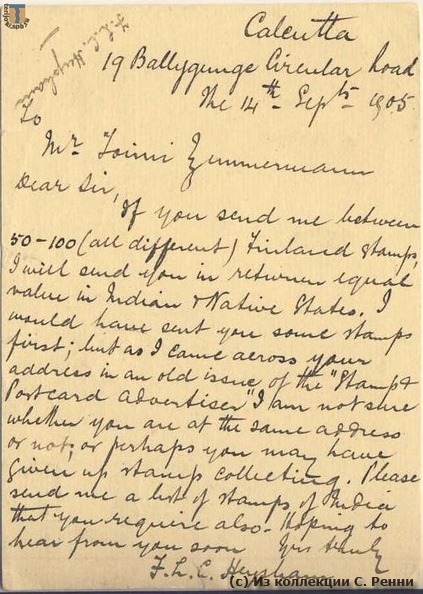 F.L.C. Heysham
Calcutta
19 Ballygunge Circular Road
The 14th Septr 1905.
To
Mr. Toini Zimmermann
Dear Sir,
If you send me between
50-100 (all different) Finland stamps,
I will send you in returner equal
value in Indian & Native States. I
would have sent you some stamps
first; but as I came across your
address in an old issue of the "Stamp &
Postcard Advertiser" I am not sure
whether you are at the same address
or not; or perhaps you may have
given up stamp collecting. Please
send me a list of stamps of India
that you require also. Hoping to
hear from you soon Yrs truly
F.L.C. Heysham
(с) Из коллекции С. Ренни